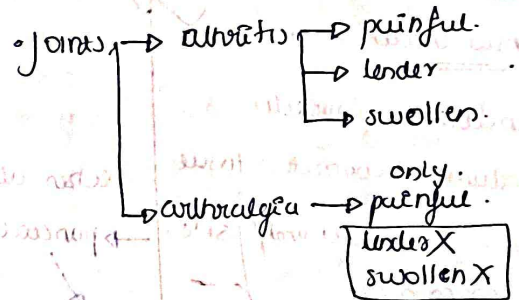 • Joints → arthritis → painful.
→ tender
→ swollen.
only.
→ arthralgia → painful.
tender X
swollen X